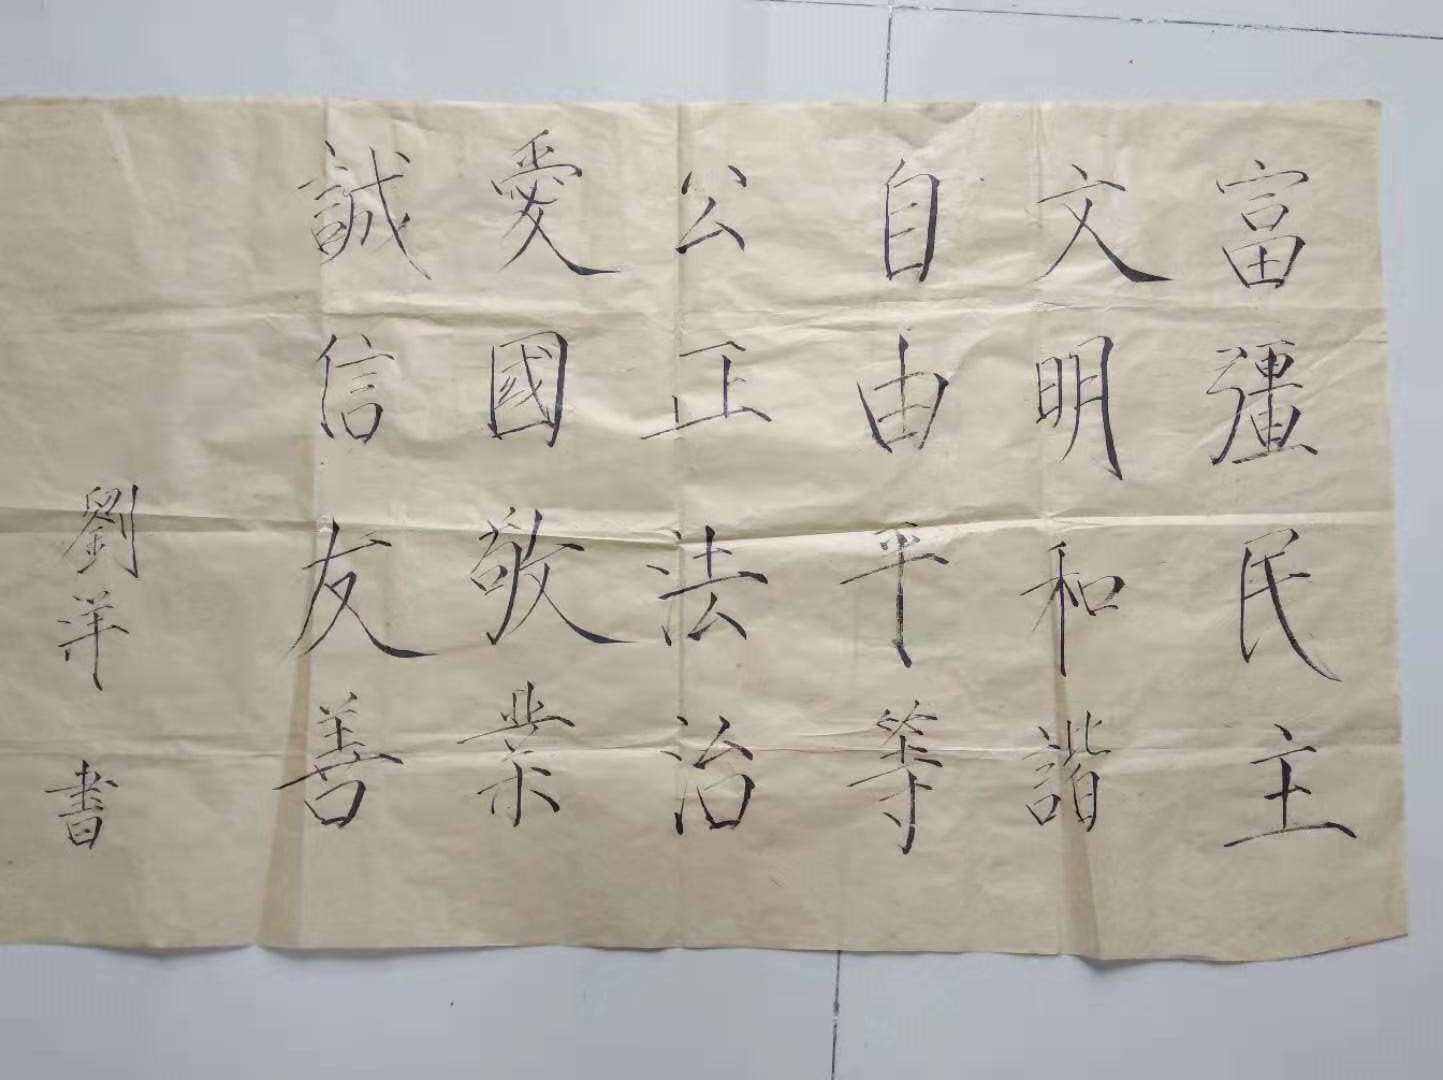 富彊民主
文明和諧
自由平等
公正法治
愛國敬業
誠信友善
劉洋書